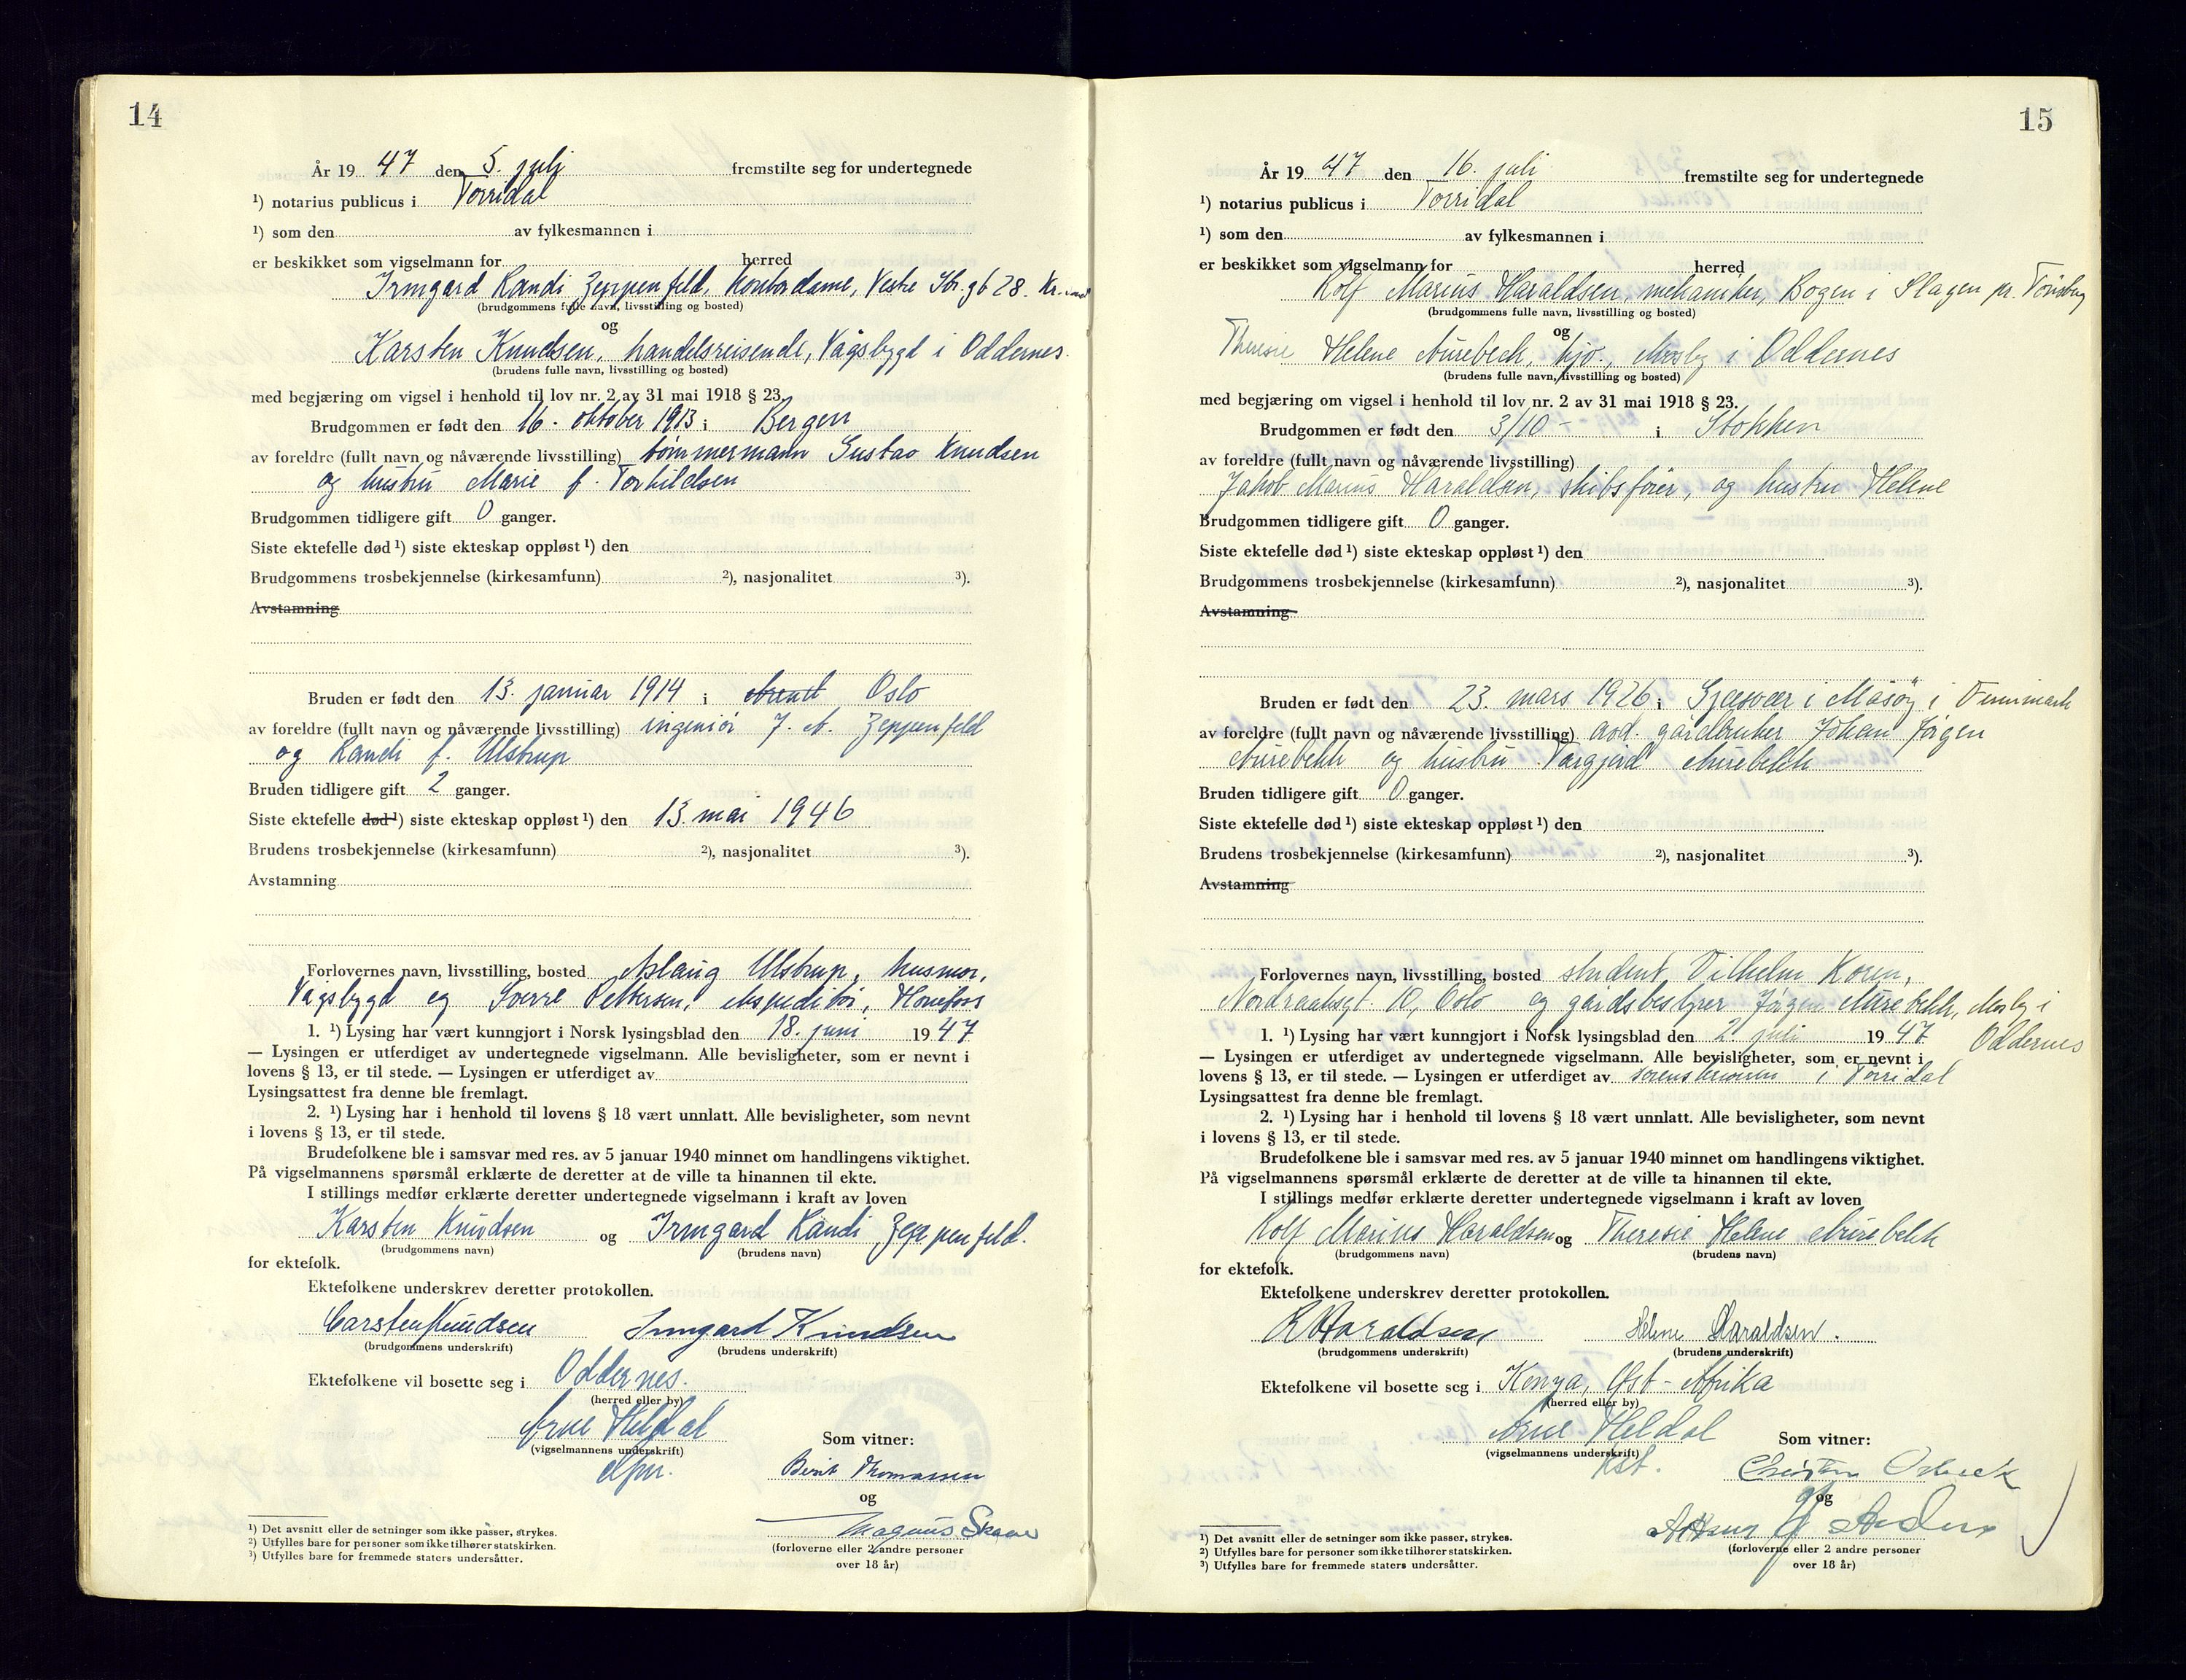 14
År 19 47 den 5. juli fremstilte seg for undertegnede
¹) notarius publicus i Torridal
¹) som den av fylkesmannen i
er beskikket som vigselmann for herred
Irmgard Randi Zeppenfeld, kontordame, Vestre Str.gt 28. Kr.sand
(brudgommens fulle navn, livsstilling og bosted)
og
Karsten Knudsen, handelsreisende, Vågsbygd i Oddernes.
(brudens fulle navn, livsstilling og bosted)
med begjæring om vigsel i henhold til lov nr. 2 av 31 mai 1918 § 23.
Brudgommen er født den 16. oktober 1913 i Bergen
av foreldre (fullt navn og nåværende livsstilling) tømmermann Gustav Knudsen
og hustru Marie f. Torkildsen
Brudgommen tidligere gift 0 ganger.
Siste ektefelle død ¹) siste ekteskap oppløst ¹) den
Brudgommens trosbekjennelse (kirkesamfunn) ²), nasjonalitet ³).
Avstamning
Bruden er født den 13. januar 1914 i Oslo
av foreldre (fullt navn og nåværende livsstilling) ingeniør J. A. Zeppenfeld
og Randi f. Ulstrup
Bruden tidligere gift 2 ganger.
Siste ektefelle død ¹) siste ekteskap oppløst ¹) den 13. mai 1946
Brudens trosbekjennelse (kirkesamfunn) ²), nasjonalitet ³).
Avstamning
Forlovernes navn, livsstilling, bosted Aslaug Ulstrup, husmor,
Vågsbygd og Sverre Pettersen, ekspeditør, Hønefoss
1. ¹) Lysing har vært kunngjort i Norsk lysingsblad den 18. juni 19 47
— Lysingen er utferdiget av undertegnede vigselmann. Alle bevisligheter, som er nevnt i
lovens § 13, er til stede. — Lysingen er utferdiget av
Lysingsattest fra denne ble fremlagt.
2. ¹) Lysing har i henhold til lovens § 18 vært unnlatt. Alle bevisligheter, som nevnt
i lovens § 13, er til stede.
Brudefolkene ble i samsvar med res. av 5 januar 1940 minnet om handlingens viktighet.
På vigselmannens spørsmål erklærte de deretter at de ville ta hinannen til ekte.
I stillings medfør erklærte deretter undertegnede vigselmann i kraft av loven
Karsten Knudsen og Irmgard Randi Zeppenfeld.
(brudgommens navn) (brudens navn)
for ektefolk.
Ektefolkene underskrev deretter protokollen.
Carsten Knudsen Irmgard Knudsen
(brudgommens underskrift) (brudens underskrift)
Ektefolkene vil bosette seg i Oddernes.
(herred eller by)
Arne Heldal
(vigselmannens underskrift)
Som vitner:
Berit Thomassen
og
Magnus
(forloverne eller 2 andre personer
over 18 år)
¹) Det avsnitt eller de setninger som ikke passer, strykes.
²) Utfylles bare for personer som ikke tilhører statskirken.
³) Utfylles bare for fremmede staters undersåtter.
15
År 19 47 den 16. juli fremstilte seg for undertegnede
¹) notarius publicus i Torridal
¹) som den av fylkesmannen i
er beskikket som vigselmann for herred
Rolf Marius Haraldsen, mekaniker, Bogen i Slagen pr. Tønsberg
(brudgommens fulle navn, livsstilling og bosted)
og
Theresie Helene Aurebech, hjv., Mosby i Oddernes
(brudens fulle navn, livsstilling og bosted)
med begjæring om vigsel i henhold til lov nr. 2 av 31 mai 1918 § 23.
Brudgommen er født den 3/10 - i Stokken
av foreldre (fullt navn og nåværende livsstilling)
Jakob Marius Haraldsen, skibsfører, og hustru Helene
Brudgommen tidligere gift 0 ganger.
Siste ektefelle død ¹) siste ekteskap oppløst ¹) den
Brudgommens trosbekjennelse (kirkesamfunn) ²), nasjonalitet ³).
Avstamning
Bruden er født den 23. mars 1926 i Gjæsvær i Måsøy i Finnmark
av foreldre (fullt navn og nåværende livsstilling) avd. gårdbruker Johan Jørgen
Aurebekk og hustru Torgjerd Aurebekk
Bruden tidligere gift 0 ganger.
Siste ektefelle død ¹) siste ekteskap oppløst ¹) den
Brudens trosbekjennelse (kirkesamfunn) ²), nasjonalitet ³).
Avstamning
Forlovernes navn, livsstilling, bosted student Vilhelm Koren,
Nordraaksgt. 10, Oslo og gårdsbestyrer Jørgen Aurebekk, Mosby i
Oddernes
1. ¹) Lysing har vært kunngjort i Norsk lysingsblad den 2. juli 19 47
— Lysingen er utferdiget av undertegnede vigselmann. Alle bevisligheter, som er nevnt i
lovens § 13, er til stede. — Lysingen er utferdiget av sorenskriveren i Torridal
Lysingsattest fra denne ble fremlagt.
2. ¹) Lysing har i henhold til lovens § 18 vært unnlatt. Alle bevisligheter, som nevnt
i lovens § 13, er til stede.
Brudefolkene ble i samsvar med res. av 5 januar 1940 minnet om handlingens viktighet.
På vigselmannens spørsmål erklærte de deretter at de ville ta hinannen til ekte.
I stillings medfør erklærte deretter undertegnede vigselmann i kraft av loven
Rolf Marius Haraldsen og Theresie Helene Aurebekk
(brudgommens navn) (brudens navn)
for ektefolk.
Ektefolkene underskrev deretter protokollen.
R Haraldsen Helene Haraldsen.
(brudgommens underskrift) (brudens underskrift)
Ektefolkene vil bosette seg i Kenya, Øst-Afrika
(herred eller by)
Arne Heldal
(vigselmannens underskrift)
Kst.
Som vitner:
og
(forloverne eller 2 andre personer
over 18 år)
¹) Det avsnitt eller de setninger som ikke passer, strykes.
²) Utfylles bare for personer som ikke tilhører statskirken.
³) Utfylles bare for fremmede staters undersåtter.